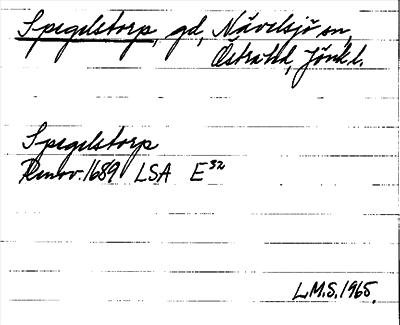 Spegelstorp, gd, Nävelsjö sn,
Östra hd, Jönk.l.
Spegelstorp
Renov. 1689 LSA E³²
L.M.S. 1965.